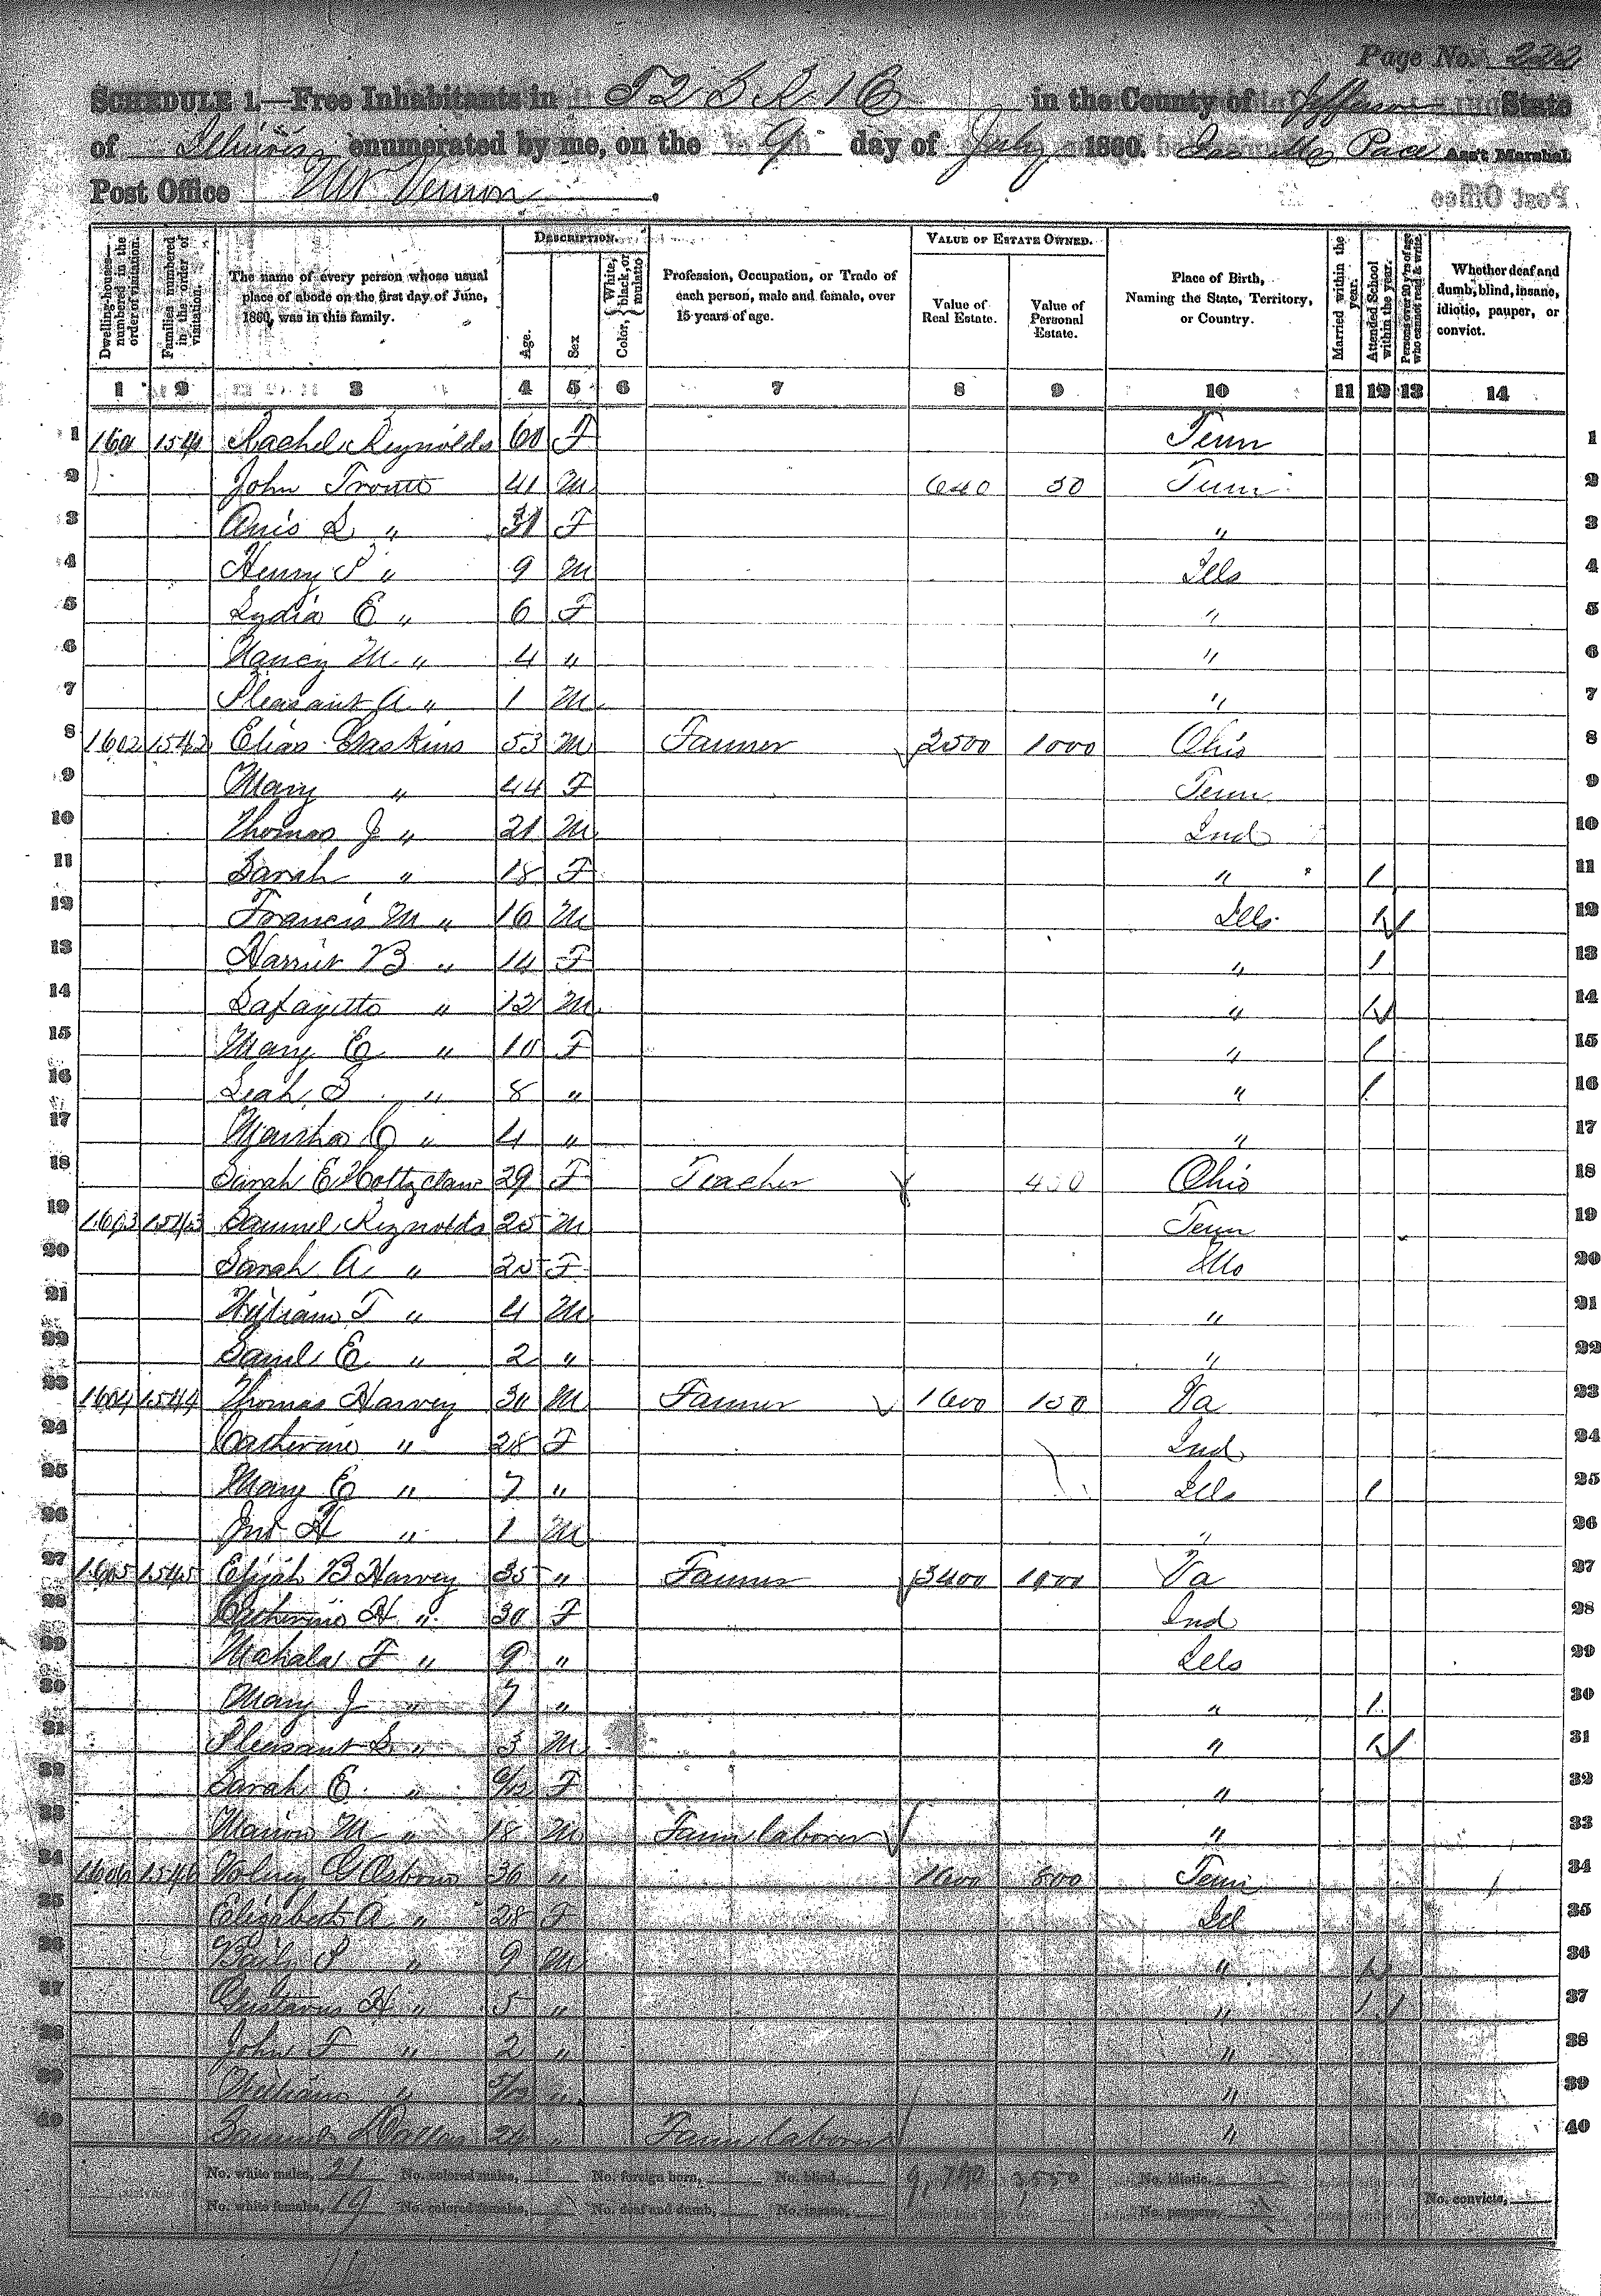 Page No. 222
SCHEDULE 1.—Free Inhabitants in T 2 S R 1 E in the County of Jefferson State
of Illinois enumerated by me, on the 9 day of July 1860. Pace Ass't Marshal
Post Office Mt Vernon.
Dwelling-houses—numbered in the order of visitation.
Families numbered in the order of visitation.
The name of every person whose usual place of abode on the first day of June, 1860, was in this family.
DESCRIPTION.
Age.
Sex
Color, {White, black, or mulatto
Profession, Occupation, or Trade of each person, male and female, over 15 years of age.
VALUE OF ESTATE OWNED.
Value of Real Estate.
Value of Personal Estate.
Place of Birth, Naming the State, Territory, or Country.
Married within the year.
Attended School within the year.
Persons over 20 y'rs of age who cannot read & write.
Whether deaf and dumb, blind, insane, idiotic, pauper, or convict.
1 2 3 4 5 6 7 8 9 10 11 12 13 14
1 Rachel Reynolds 60 F Tenn 1
2 John Troutt 41 M 640 50 Tenn 2
3 S " 31 F " 3
4 Henry P " 9 M Ills 4
5 Lydia E " 6 F " 5
6 Nancy M " 4 " " 6
7 Pleasant A " 1 M " 7
8 1602 1542 Elias Gaskins 53 M Farmer 2500 1000 Ohio 8
9 Mary " 44 F Tenn 9
10 Thomas J " 21 M Ind 10
11 Sarah " 18 F " 1 11
12 Francis M " 16 M Ills 1 12
13 Harriet B " 14 F " 1 13
14 Lafayette " 12 M " 1 14
15 Mary E " 10 F " 1 15
16 Leah S " 8 " " 1 16
17 Martha C " 4 " " 17
18 Sarah E Holtzclaw 29 F Teacher 400 Ohio 18
19 1603 1543 Samuel Reynolds 25 M Tenn 19
20 Sarah A " 25 F Mo 20
21 William T " 4 M " 21
22 Saml E " 2 " " 22
23 1604 1544 Thomas Harvey 30 M Farmer 1600 150 Va 23
24 Catherine " 28 F Ind 24
25 Mary E " 7 " Ills 1 25
26 Jno H " 1 M " 26
27 1605 1545 Elijah B Harvey 35 " Farmer 3400 1000 Va 27
28 Catherine H " 30 F Ind 28
29 Mahala F " 9 " Ills 29
30 Mary J " 7 " " 1 30
31 Pleasant S " 3 M " 1 31
32 Sarah E " 6/12 F " 32
33 Marion M " 18 M Farm laborer " 33
34 1606 1546 Volney G Osborn 36 " 1600 800 Tenn 34
35 Elizabeth A " 28 F Ill 35
36 P " 9 M " 1 36
37 Gustavus H " 5 " " 1 37
38 John F " 2 " " 38
39 William " 5/12 " " 39
40 Samuel 24 " Farm laborer " 40
No. white males, 21 No. colored males, No. foreign born, No. blind, 3550 No. idiotic,
No. white females, 19 No. colored females, No. deaf and dumb, No. insane, No. paupers, No. convicts,